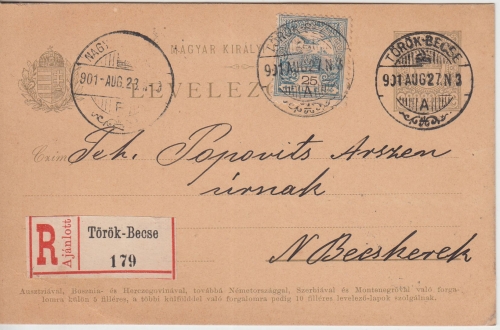 MAGYAR KIRÁLYI
LEVELEZ
NAGY
901-AUG.28
TÖRÖK-BECSE
901 AUG 27. N 3
A
25
TÖRÖK-BECSE
901 AUG 27. N 3
A
Czím: Teh. Popovits Arszen
úrnak
N Becskerek
R
Ajánlott
Török-Becse
179
Ausztriával, Bosznia- és Herczegovinával, továbbá Németországgal, Szerbiával és Montenegróval való forga-
lomra külön 5 filléres, a többi külfölddel való forgalomra pedig 10 filléres levelező-lapok szolgálnak.